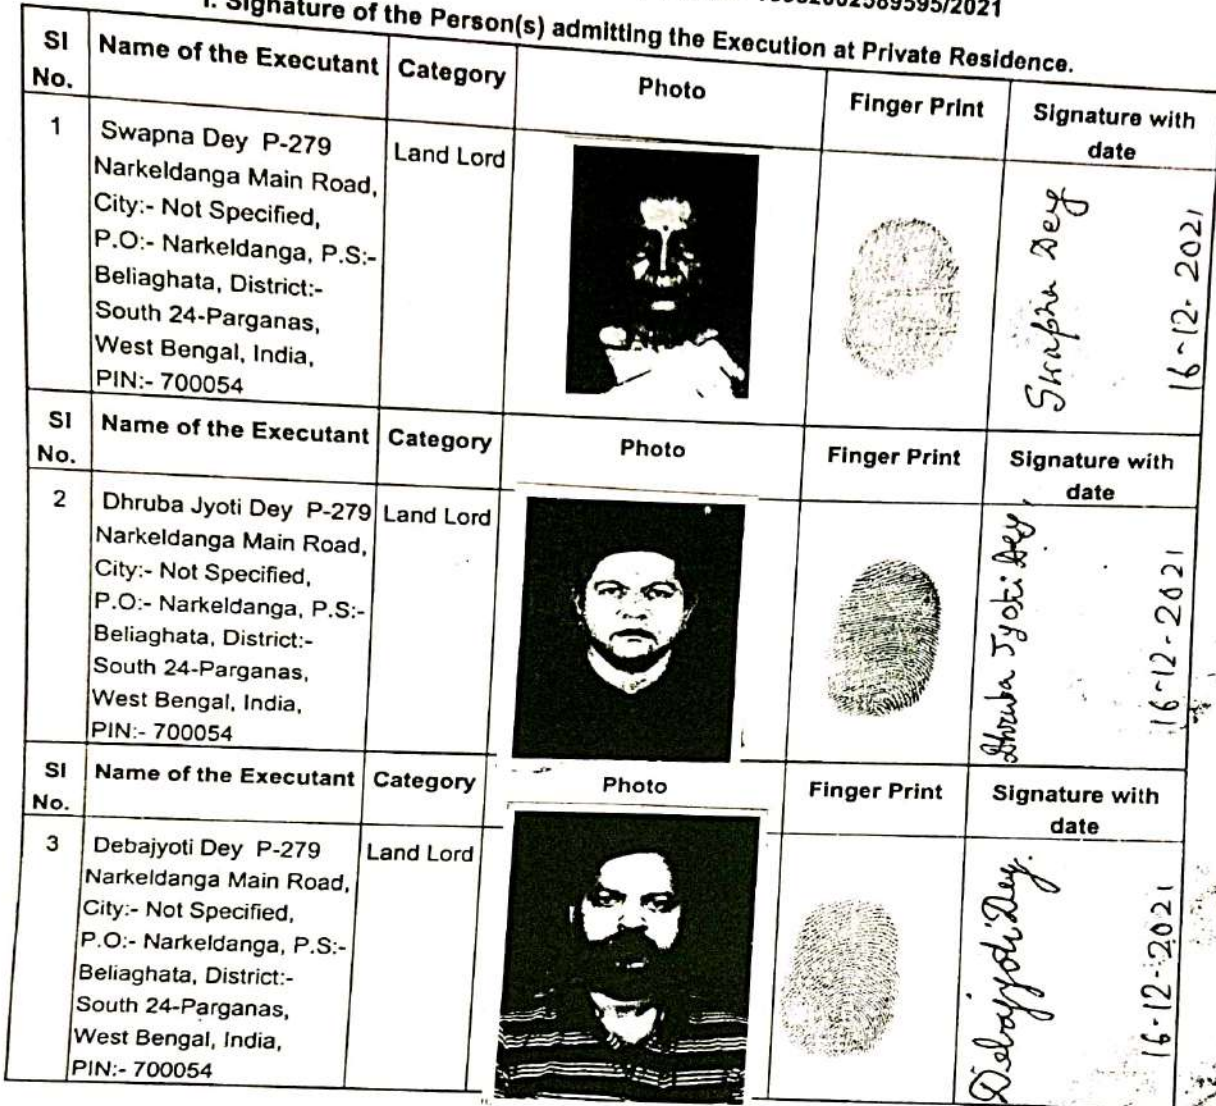 /2021
I. Signature of the Person(s) admitting the Execution at Private Residence.
Sl No. Name of the Executant Category Photo Finger Print Signature with date
1 Swapna Dey P-279 Land Lord
Narkeldanga Main Road,
City:- Not Specified,
P.O:- Narkeldanga, P.S:-
Beliaghata, District:-
South 24-Parganas,
West Bengal, India,
PIN:- 700054
Swapna Dey
16-12-2021
Sl No. Name of the Executant Category Photo Finger Print Signature with date
2 Dhruba Jyoti Dey P-279 Land Lord
Narkeldanga Main Road,
City:- Not Specified,
P.O:- Narkeldanga, P.S:-
Beliaghata, District:-
South 24-Parganas,
West Bengal, India,
PIN:- 700054
Dhruba Jyoti Dey,
16-12-2021
Sl No. Name of the Executant Category Photo Finger Print Signature with date
3 Debajyoti Dey P-279 Land Lord
Narkeldanga Main Road,
City:- Not Specified,
P.O:- Narkeldanga, P.S:-
Beliaghata, District:-
South 24-Parganas,
West Bengal, India,
PIN:- 700054
Debajyoti Dey.
16-12-2021